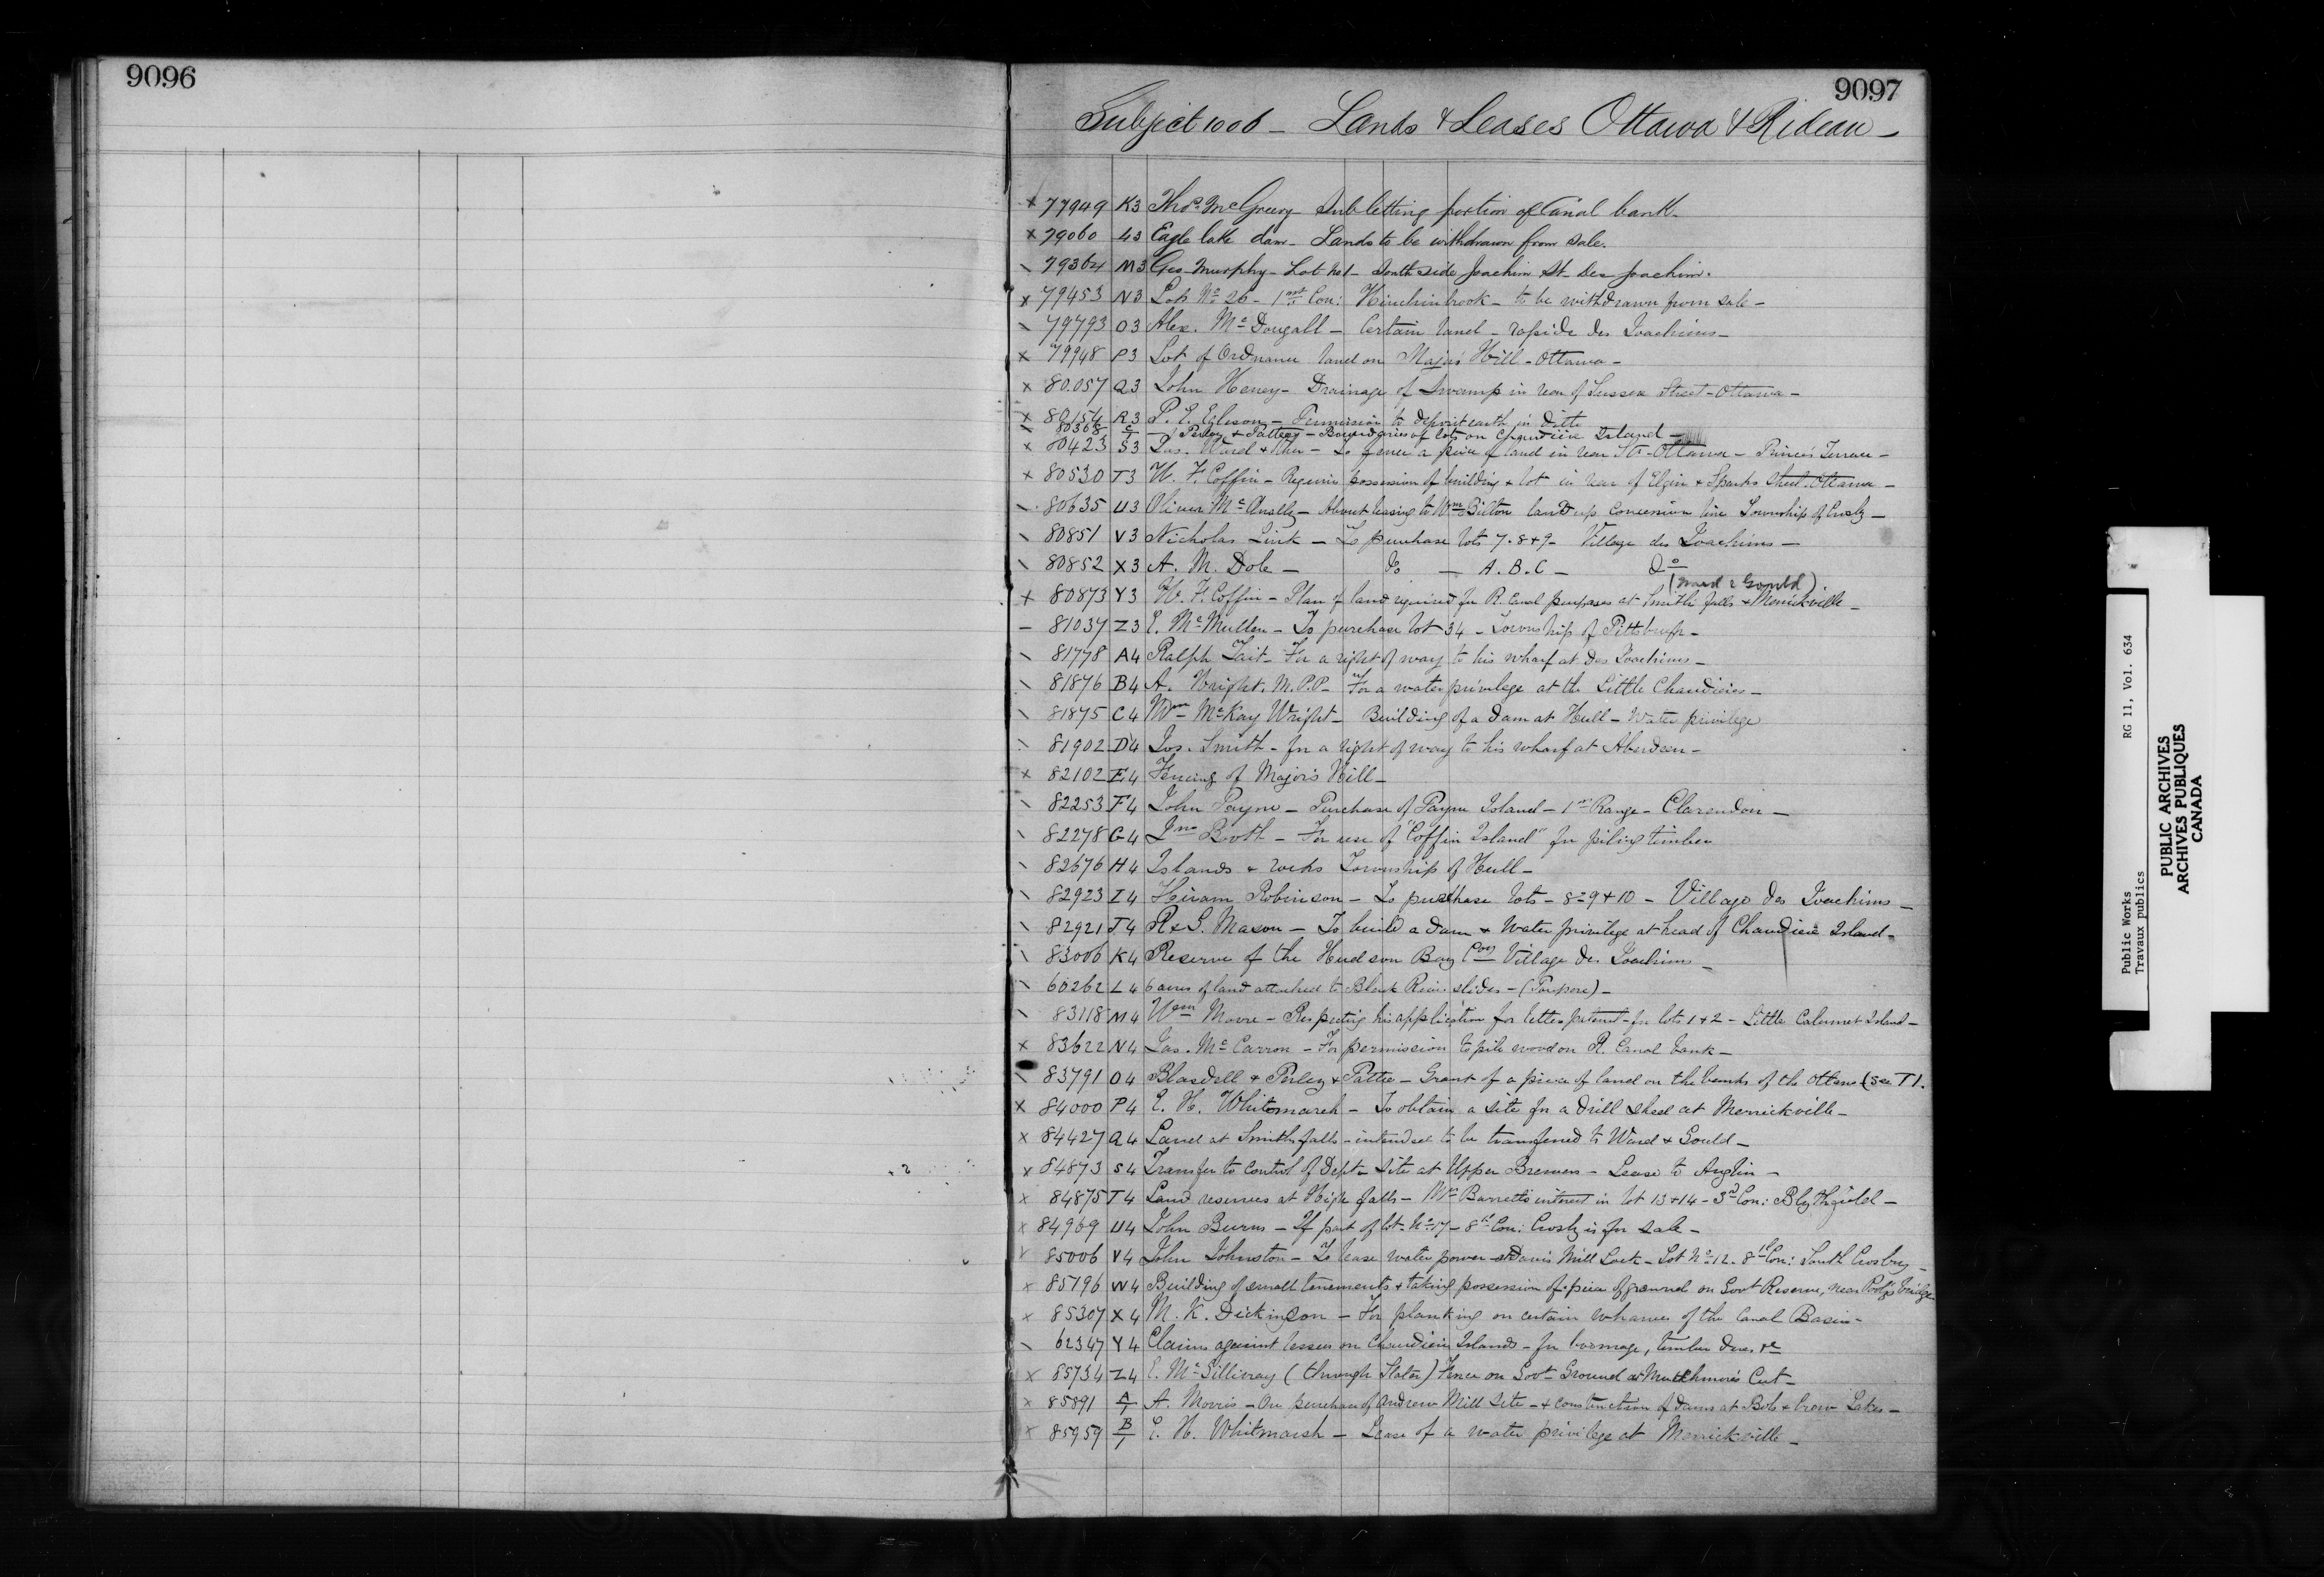 9096
9097
Subject 1006 - Lands & Leases Ottawa & Rideau -
x 77949 K3 Thos McGreevy Subletting portion of Canal bank -
x 79060 L3 Eagle lake dam - Lands to be withdrawn from sale.
\ 79364 M3 Geo Murphy - Lot No 1 - South side Joachim St Des Joachim.
x 79453 N3 Lot No 26 - 1st Con: Hinchinbrook - to be withdrawn from sale -
\ 79793 O3 Alex. McDougall - Certain land - rapide des Joachims -
x 79948 P3 Lot of Ordnance land on Major's Hill - Ottawa -
x 80.057 Q3 John Heney - Drainage of Swamp in rear of Sussex Street - Ottawa -
x 80154 R3 P. E. Egleson - Permission to deposit earth in Ditto
\ 80368 C/1 - Perley & Pattee - Boundaries of lots on Chaudière Island -
x 80423 S3 Jas. Ward & other - To fence a piece of land in rear - Ottawa - Princes Terrace -
x 80530 T3 W. F. Coffin - Requires possession of building & lot in rear of Elgin & Sparks Street - Ottawa -
\ 80635 U3 Oliver McAnally - About leasing to Wm Bilton land up Concession line Township of Crosby -
\ 80851 V3 Nicholas Link - To purchase lots 7. 8 & 9 - Village des Joachims -
\ 80852 X3 A. M. Dole - Do - A. B. C - Do
(Ward & Gould)
x 80873 Y3 W. F. Coffin - Plan of land required for R. Canal purposes at Smiths falls & Merrickville -
- 81037 Z3 E. McMullen - To purchase lot 34 - Township of Pittsburgh -
\ 81778 A4 Ralph Tait - For a right of way to his wharf at Des Joachims -
\ 81876 B4 A. Wright. M.P.P. - For a water privilege at the Little Chaudière -
\ 81875 C4 Wm McKay Wright - Building of a dam at Hull - water privilege
\ 81902 D4 Jos. Smith - for a right of way to his wharf at Aberdeen -
x 82102 E4 Fencing of Major's Hill -
\ 82253 F4 John Payne - Purchase of Payne Island - 1st Range - Clarendon -
\ 82278 G4 Jno Booth - For use of "Coffin Island" for piling timber
\ 82676 H4 Islands & rocks Township of Hull -
\ 82923 I4 Hiram Robinson - To purchase lots - 8 - 9 & 10 - Village des Joachims -
\ 82921 J4 R & S. Mason - To build a dam & water privilege at head of Chaudière Island -
\ 83006 K4 Reserve of the Hudson Bay Coy Village des Joachims -
\ 60262 L4 6 acres of land attached to Black River slides - (Poupore) -
\ 83118 M4 Wm Moore - Respecting his application for letters patent - for lots 1 & 2 - Little Calumet Island -
x 83622 N4 Jas. McCarron - For permission to pile wood on R. Canal bank -
\ 83791 O4 Blasdell & Perley & Pattee - Grant of a piece of land on the banks of the Ottawa (See T1.
x 84000 P4 E. H. Whitmarsh - To obtain a site for a drill shed at Merrickville -
x 84427 Q4 Land at Smiths falls - intended to be transferred to Ward & Gould -
x 84873 S4 Transfer to control of Dept - Site at Upper Brewers - Lease to Anglin -
x 84875 T4 Land reserves at High falls - Mr Barrett's interest in lot 13 & 14 - 3d Con: Blythfield -
x 84969 U4 John Burns - If part of lot No 17 - 8th Con: Crosby is for sale -
x 85006 V4 John Johnston - To lease water power at Davis Mill Lock - Lot No 12 - 8th Con: South Crosby -
x 85196 W4 Building of small tenements & taking possession of piece of ground on Govt Reserve, near bridge
x 85307 X4 M. K. Dickinson - For planking on certain wharves of the Canal Basin -
\ 62347 Y4 Claims against lessees on Chaudière Islands - for boomage, timber dues &c
x 85734 Z4 E. McGillivray (through Slater) Fence on Govt Ground at Mutchmore's Cut -
x 85891 A/1 A. Morris - On purchase of Andrew Mill Site - & construction of dams at Bob & Crow Lakes -
x 85959 B/1 E. H. Whitmarsh - Lease of a water privilege at Merrickville -
Public Works RG 11, Vol. 634
Travaux publics
PUBLIC ARCHIVES
ARCHIVES PUBLIQUES
CANADA